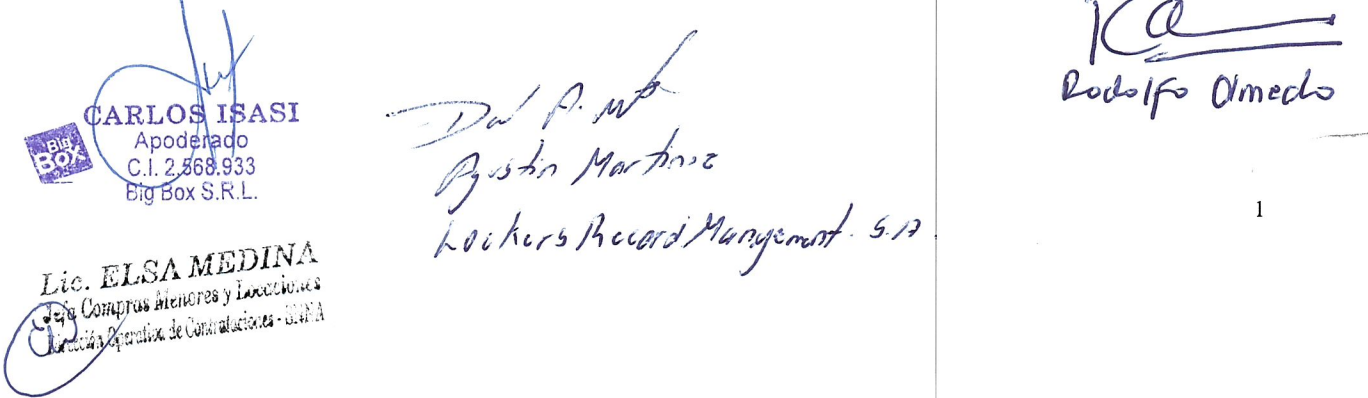 CARLOS ISASI
Apoderado
C.I. 2.568.933
Big Box S.R.L.
Big
BOX
Lic. ELSA MEDINA
Jefa Compras Menores y Locaciones
Dirección Operativa de Contrataciones -
Agustin Martinez
Lockers Record Management S.A
Rodolfo Olmedo
1